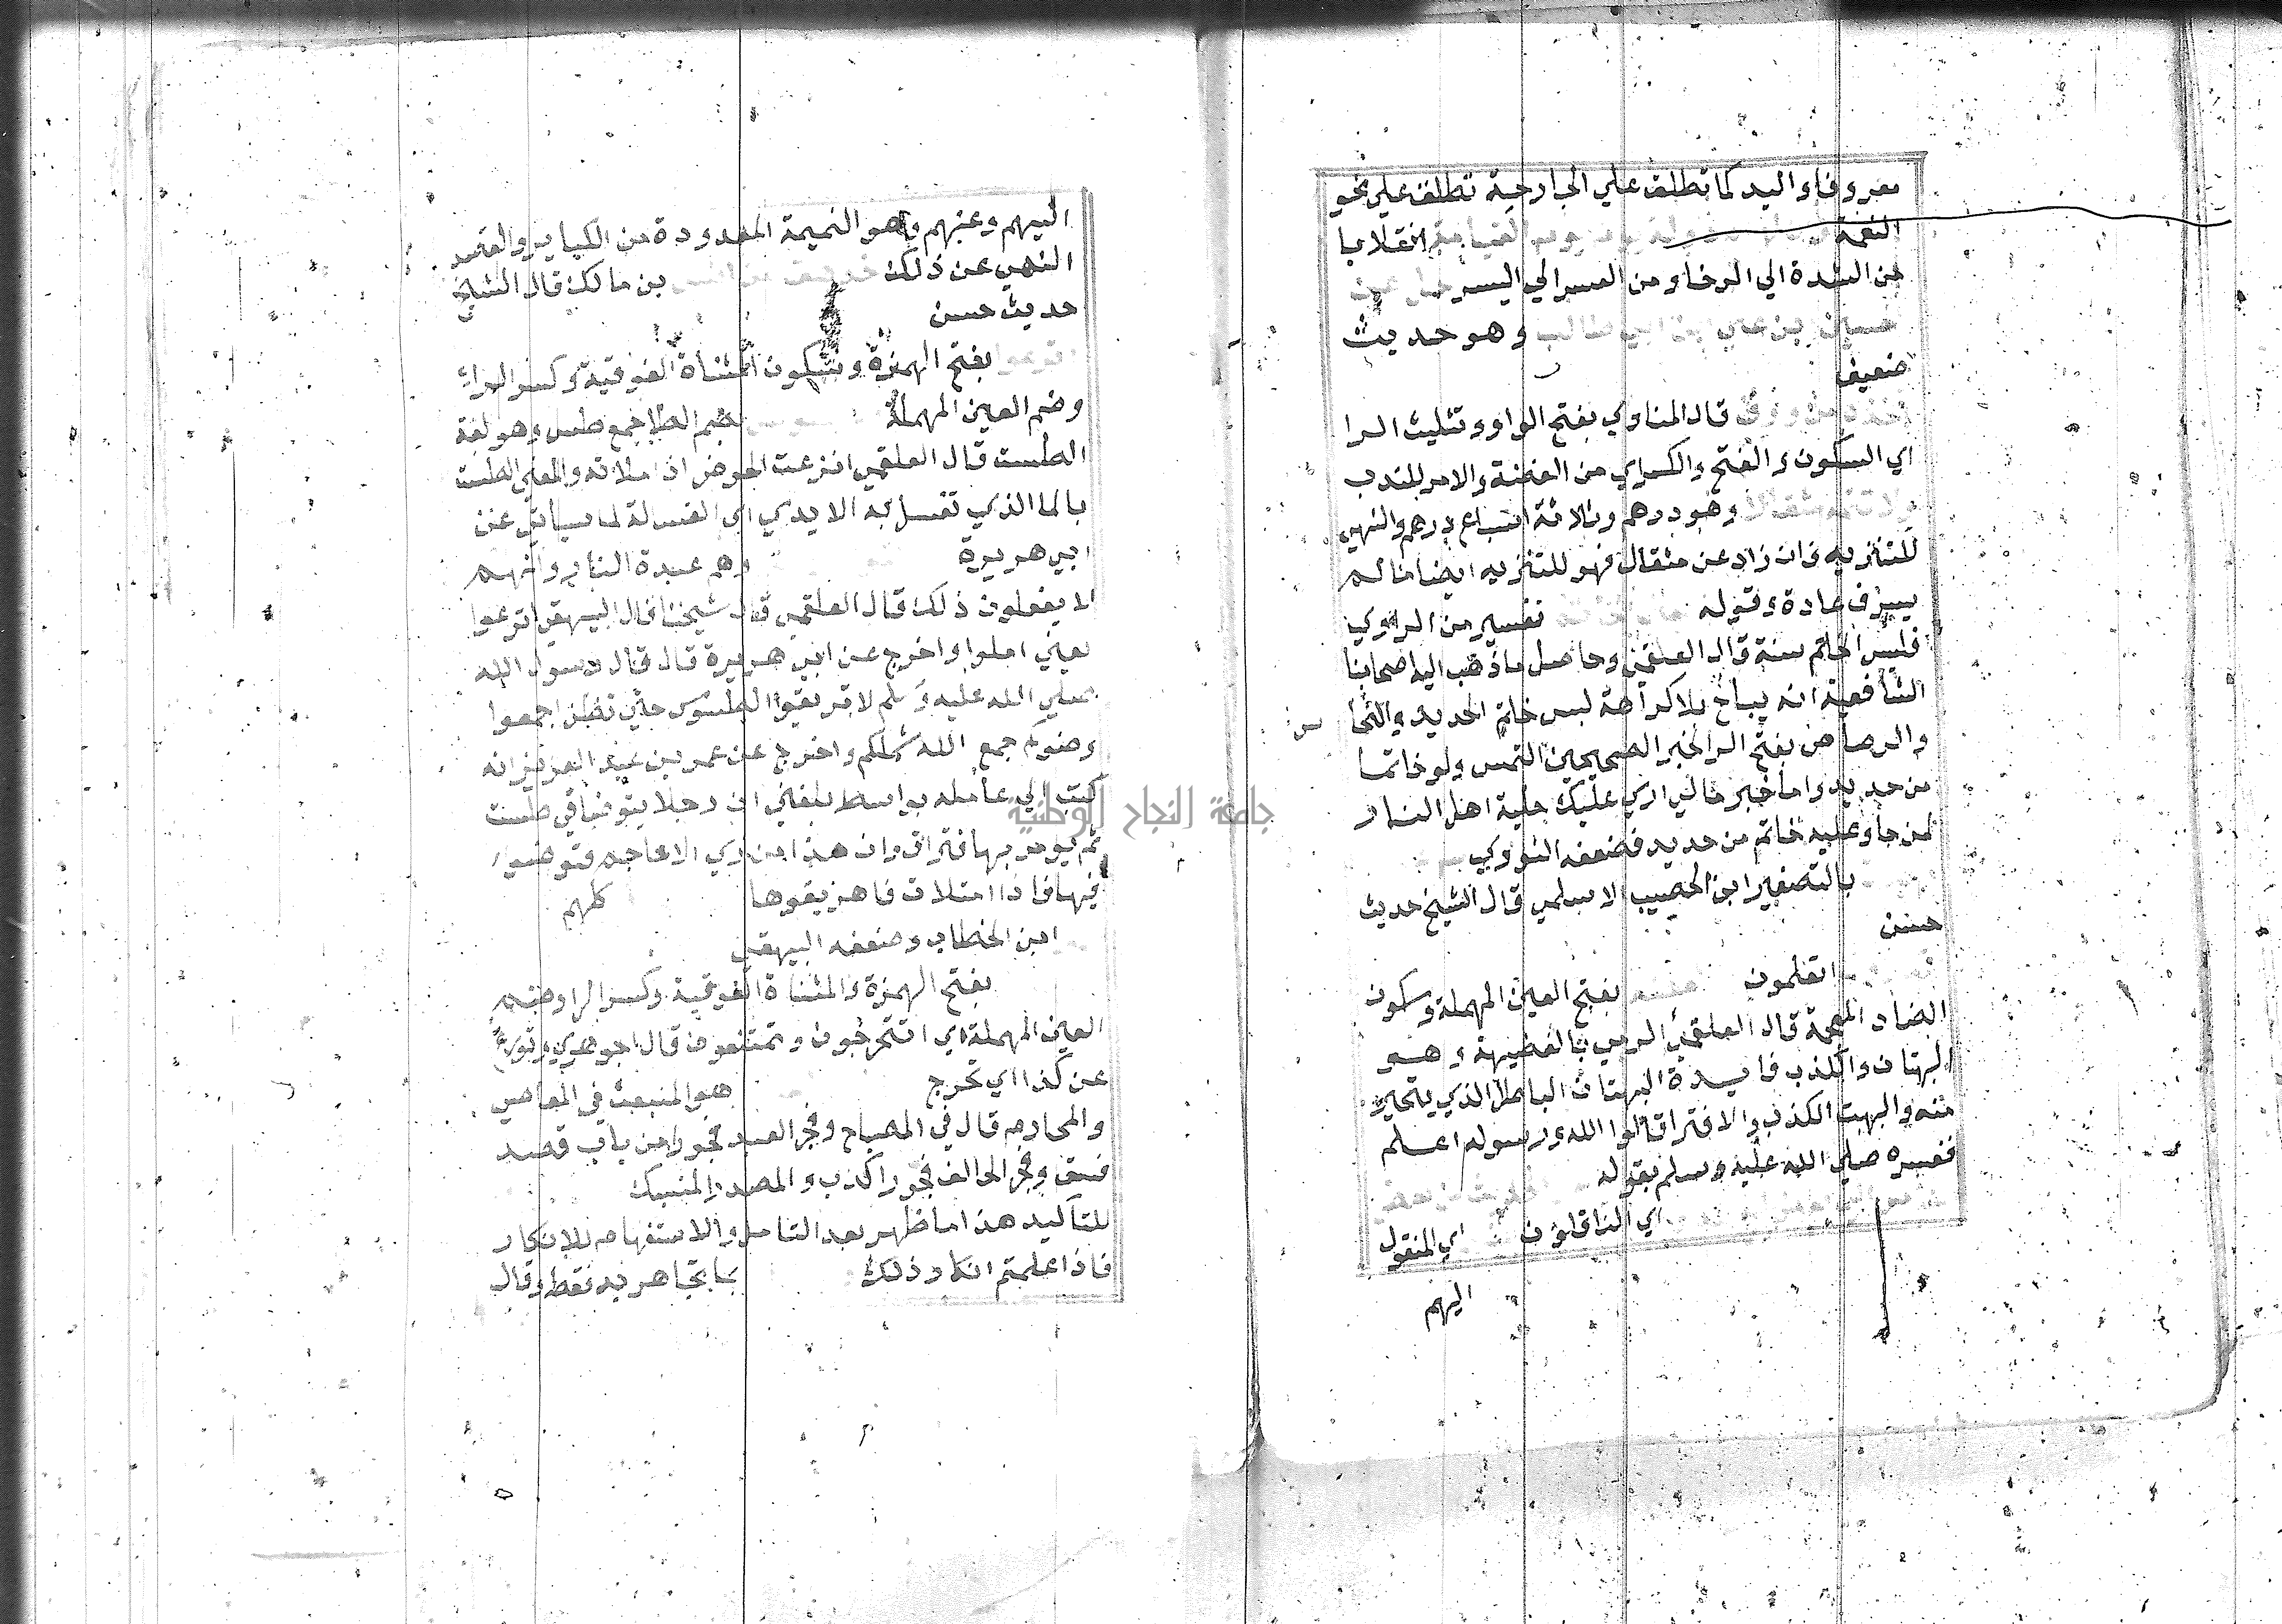 معروفا واليد كما تطلق علي الجارحة تطلق علي نحو
النعمة يوم القيامة انقلابا
من الشدة الي الرخا ومن العسر الي اليسر حل عن
حسين بن علي ابن ابي طالب وهو حديث
ضعيف
اتخذه من ورق قال المناوي بفتح الواو وتثليث الرا
اي السكون والفتح والكسر اي من الفضة والامر للندب
ولا تتمه مثقالا وهو درهم وثلاثة اسباع درهم والنهي
للتنزيه فان زاد عن مثقال فهو للتنزيه ايضا ما لم
يسرف عادة وقوله تفسير من الراوي
فلبس الخاتم سنة قال العلقمي وحاصل ما ذهب اليه اصحابنا
الشافعية انه يباح بلا كراهة لبس خاتم الحديد والنحا س
والرصاص بفتح الرا لخبر الصحيحين التمس ولو خاتما
من حديد واما خبر مالي اري عليك حلية اهل النار
لمن جا وعليه خاتم من حديد فضعفه النووي
بالتصغير ابن الحصيب الاسلمي قال الشيخ حديث
حسن
اتعلمون بفتح العين المهملة وسكون
الضاد المعجمة قال العلقمي الرمي بالعضيهة وهو
البهتان والكذب فايدة البهتان الباطل الذي يتحير
منه والبهت الكذب والافترا قالوا الله ورسوله اعلم
ففسره صلي الله عليه وسلم بقوله
اي الناقلون اي المنقول
اليهم
اليهم وعنهم وهو النميمة المعدودة من الكباير والقصد
النهي عن ذلك بن مالك قال الشيخ
حديث حسن
اترعوا بفتح الهمزة وسكون المثناة الفوقية وكسر الرا
وضم العين المهملة بضم الطا جمع طس وهو لغة
الطست قال العلقمي اترعت الحوض اذا ملاته والمعني الطست
بالما الذي تغسل به الايدي اي الغسالة لما سياتي عن
ابي هريرة وهم عبدة النار وانهم
لا يفعلون ذلك قال العلقمي قال شيخنا قال البيهقي اترعوا
يعني املوا واخرج عن ابي هريرة قال قال رسول الله
صلي الله عليه وسلم لا تريقوا الطسوس حتي تطف اجمعوا
وضوكم جمع الله شملكم واخرج عن عمر بن عبد العزيز انه
كتب الي عامله بواسط بلغني ان رجلا يتوضا في طست
ثم يومر بها فتراق وان هذا من زي الاعاجم فتوضوا
فيها فاذا امتلات فاهريقوها كلهم
ابن الخطاب وضعفه البيهقي
بفتح الهمزة والمثناة الفوقية وكسر الرا وضم
العين المهملة اي اتتحرجون وتمتنعون قال الجوهري وتورع
عن كذا اي تحرج هو المنبعث في المعاصي
والمحارم قال في المصباح وفجر العبد فجورا من باب قصد
فسق وفجر الحالف فجورا كذب والمصدر المنسبك
للتاكيد هذا ما ظهر بعد التامل والاستفهام للانكار
فاذا علمتم انكار ذلك بما تجاهر به فقط وقال
جامعة النجاح الوطنية